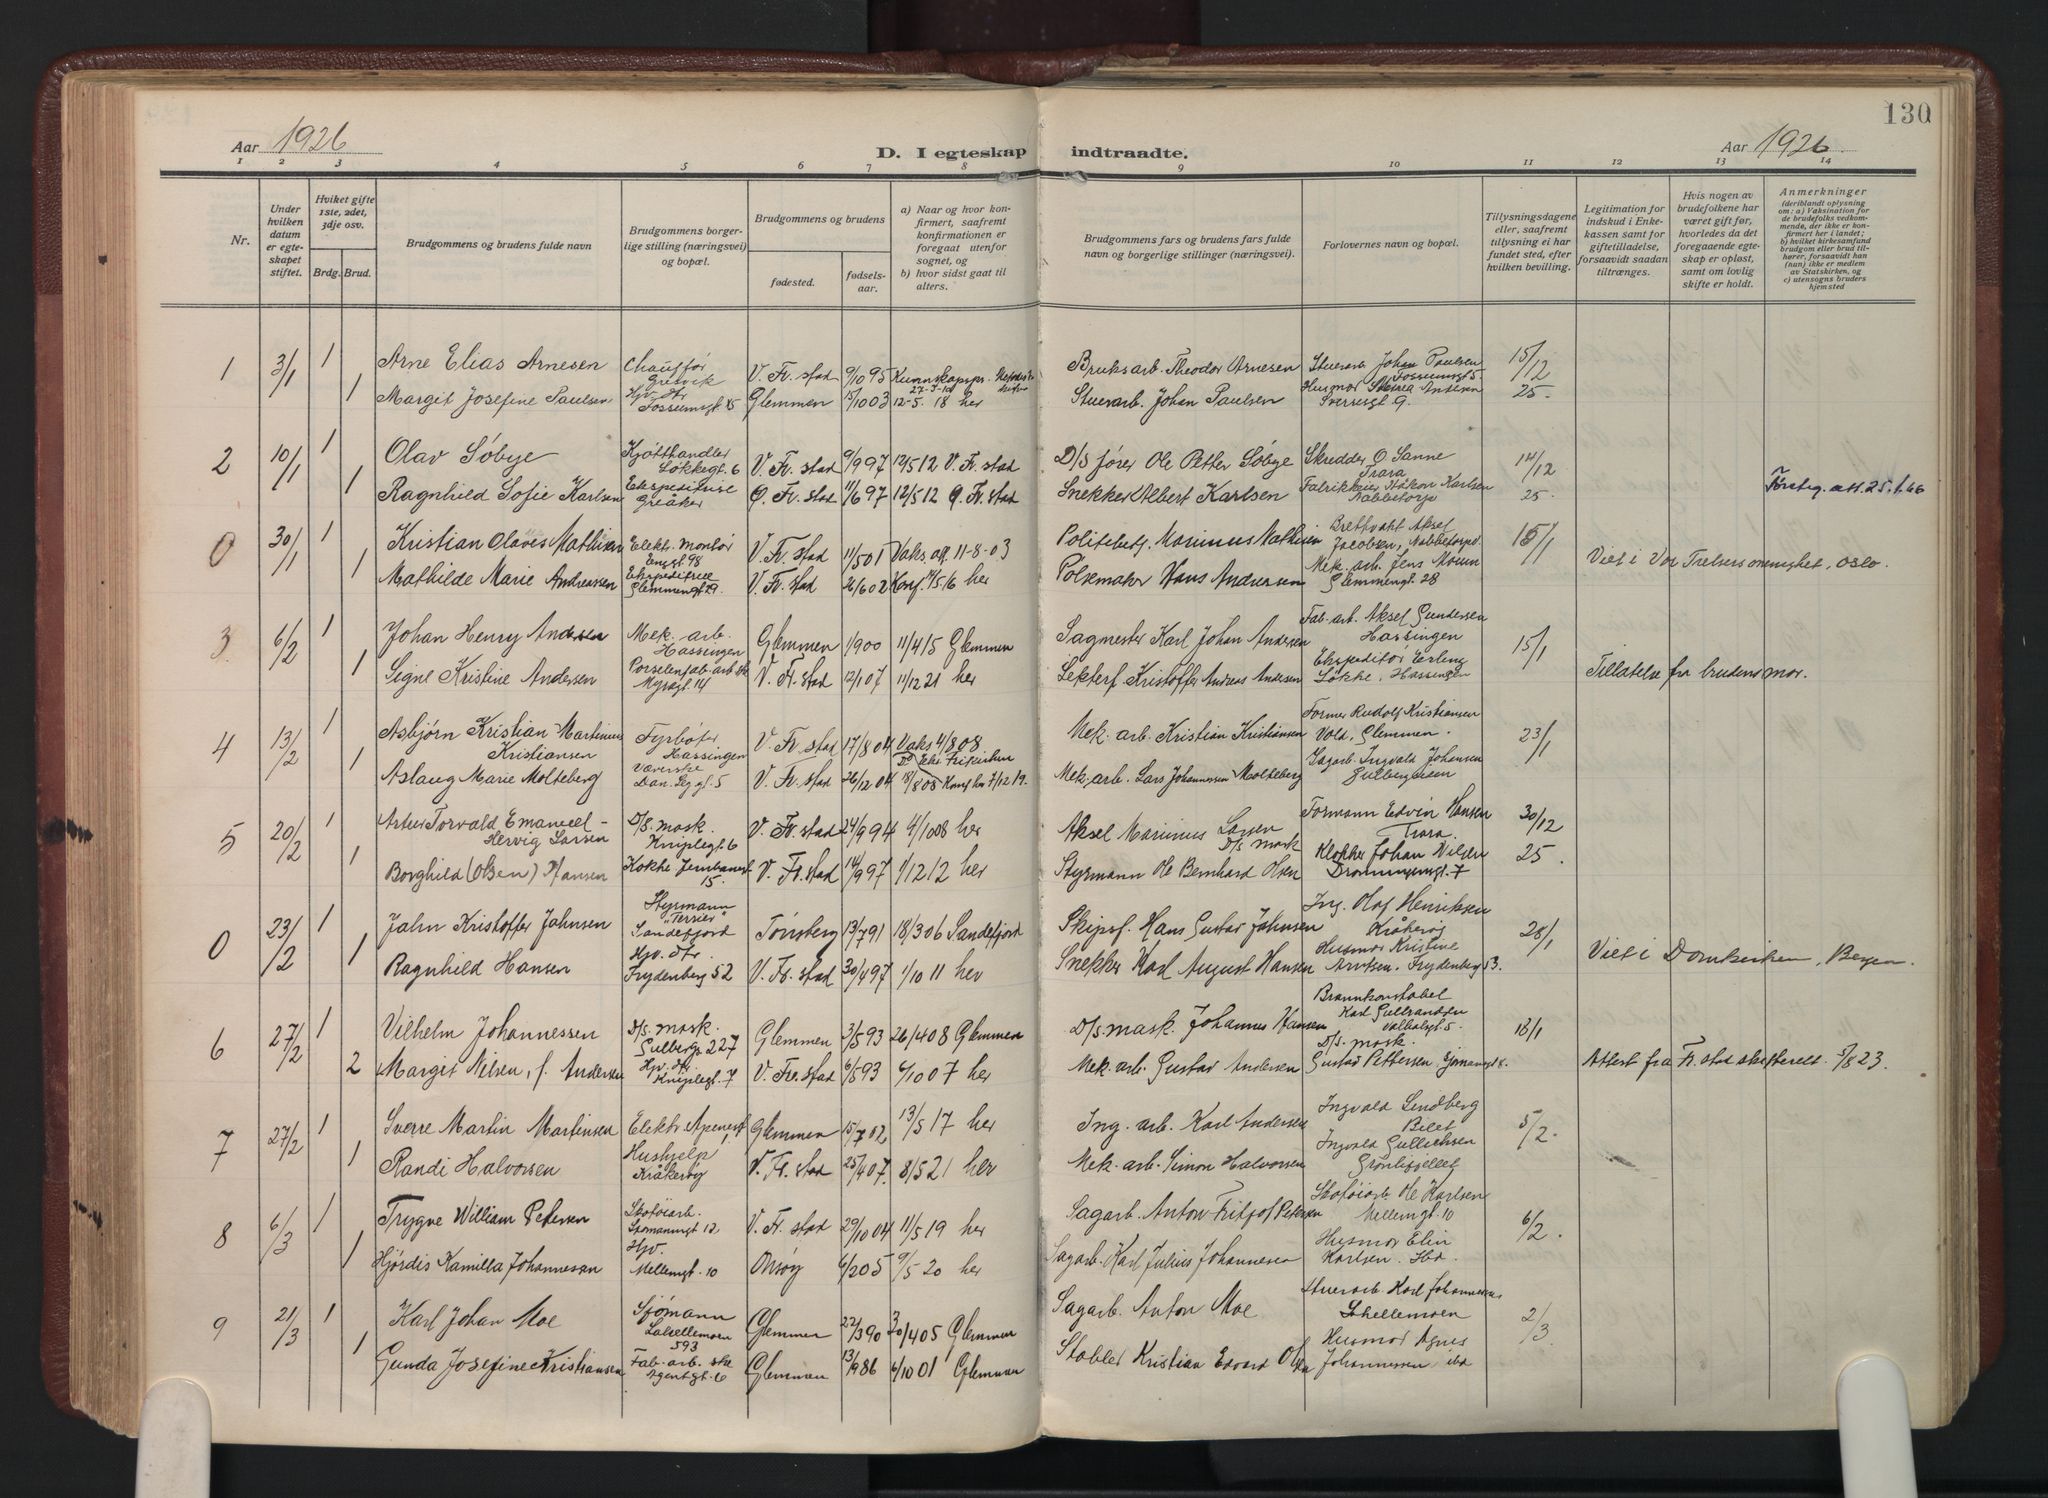 130
Aar 1926
D. I egteskap indtraadte.
Aar 1926.
1 2 3 4 5 6 7 8 9 10 11 12 13 14
Nr.
Under hvilken datum er egteskapet stiftet.
Hviket gifte 1ste, 2det, 3dje osv.
Brdg. Brud.
Brudgommens og brudens fulde navn
Brudgommens borgerlige stilling (næringsvei) og bopæl.
Brudgommens og brudens
fødested.
fødselsaar.
a) Naar og hvor konfirmert, saafremt konfirmationen er foregaat utenfor sognet, og
b) hvor sidst gaat til alters.
Brudgommens fars og brudens fars fulde navn og borgerlige stillinger (næringsvei).
Forlovernes navn og bopæl.
Tillysningsdagene eller, saafremt tillysning ei har fundet sted, efter hvilken bevilling.
Legitimation for indskud i Enkekassen samt for giftetilladelse, forsaavidt saadan tiltrænges.
Hvis nogen av brudefolkene har været gift før, hvorledes da det foregaaende egteskap er opløst, samt om lovlig skifte er holdt.
Anmerkninger
(deriblandt oplysning om: a) Vaksination for de brudefolks vedkommende, der ikke er konfirmert her i landet; b) hvilket kirkesamfund brudgom eller brud tilhører, forsaavidt han (hun) ikke er medlem av Statskirken, og c) utensogns bruders hjemsted
1 3/1 1 Arne Elias Arnesen Chauffør Gresvik V. Fr. stad 9/10 95 Kunnskapspr. Bruksarb. Theodor Arnesen Stuerarb. Johan Paulsen Fossumgt 5. 15/12
1 Margit Josefine Paulsen Hjv. dtr Fossumgt. 15 Glemmen 15/10 03 12-5. 18 her Stuerarb. Johan Paulsen Husmor Andersen Sverresgt 9. 25.
2 10/1 1 Olav Søbye Kjøtthandler Løkkegt. 6 V. Fr. stad 9/9 97 12/5 12 V. Fr. stad D/S fører Ole Petter Søbye Skredder O Sanne Trara 14/12
1 Ragnhild Sofie Karlsen Ekspeditrise Greåker Ø. Fr. stad 11/6 97 12/5 12 Ø. Fr. stad Snekker Albert Karlsen Fabrikkeier Håkon Karlsen Nabbetorp 25.
0 30/1 1 Kristian Olaves Mathisen Elektr. Montør Enggt. 98 V. Fr. stad 11/5 01 Vaks. att. 11-8-03 Politibetj. Marinus Mathisen Brettvakt Aksel Jacobsen, Nabbetorp. 15/1 Viet i Vor Frelsers menighet, Oslo.
1 Mathilde Marie Andreassen Ekspeditrice Glemmengt 29. V. Fr. stad 26/6 02 Konf. 14/5 16 her Polemaker Hans Andersen Mek. arb. Jens Moum Glemmengt. 28
3 6/2 1 Johan Henry Andersen Mek. arb. Hassingen Glemmen 1/9 00 11/4 15 Glemmen Sagmester Karl Johan Andersen Fab. arb. Aksel Gundersen Hassingen 15/1
1 Signe Kristine Andersen Porselenfab. arb.ske Myragt. 14 V. Fr. stad 12/1 07 11/12 21 her Lekterf. Kristoffer Andreas Andersen Ekspeditør Erling Løkke, Hassingen Tillatelse fra brudens mor.
4 13/2 1 Asbjørn Kristian Martinius Kristiansen Fyrbøter Hassingen V. Fr. stad 17/8 04 Vaks 4/8 08 Mek. arb. Kristian Kristiansen Former Rudolf Kristiansen Vold, Glemmen. 23/1
1 Aslaug Marie Molteberg Væverske V. Fr. stad 26/12 04 18/8 08 Konf her 7/12 19. Mek. arb. Lars Johannessen Molteberg Sagarb. Ingvald Johansen Gulbergåsen
5 20/2 1 Artur Torvald Emanuel - Hervig Larsen D/S. mask. Kniplegt. 6 V. Fr. stad 24/9 94 4/10 08 her Aksel Marinius Larsen D/s mask Formann Edvin Hansen Trara. 30/12
1 Borghild (Olsen) Hansen Kokke Jernbanegt 15. V. Fr. stad 14/9 97 1/12 12 her Styrmann Ole Bernhard Olsen Klokker Johan Wilsen Dronningensgt. 7 25.
0 23/2 1 Jahn Kristoffer Jahnsen Styrmann "Terrier" Sandefjord Tønsberg 13/7 91 18/3 06 Sandefjord Skipsf. Hans Gustav Jahnsen Ing. Olaf Henriksen Kråkerøy 28/1 Viet i Domkirken, Bergen.
1 Ragnhild Hansen Hjv. dtr. Frydenberg 52 V. Fr. stad 30/4 97 1/10 11 her Snekker Karl August Hansen Husmor Kristine Arntsen. Frydenberg 53.
6 27/2 1 Vilhelm Johannessen D/S. mask. Gulbergs 227 Glemmen 3/5 93 26/4 08 Glemmen D/s mask. Johannes Hansen Brannkonstabel Karl Gulbrandsen Valhalsgt 5. 18/1
2 Margit Nilsen, f. Andersen Hjv. dtr Kniplegt. 7 V. Fre. stad 6/5 93 6/10 07 her Mek. arb. Gustav Andersen D/s. mask. Gustav Pettersen, Attest fra Fr. stad skifterett. 5/8 23.
7 27/2 1 Sverre Martin Martinsen Elektr. Glemmen 15/7 02 13/5 17 her Ing. arb. Karl Andersen Ingvald Lindberg Bilet 5/2.
1 Randi Halvorsen Hushjelp Kråkerøy V. Fr. stad 25/4 07. 8/5 21 her Mek. arb. Simon Halvorsen Ingvald Gullichsen Grønlifjellet
8 6/3 1 Trygve William Petersen Skoføiarb. Lømanngt 12 V. Fr. stad 29/10 04 11/5 19 her Sagarb. Anton Fritjof Petersen Skotøiarb Ole Karlsen Mellemgt. 10 6/2.
1 Hjørdis Kamilla Johannesen Hjv. Mellemgt. 10 Onsøy 6/2 05 9/5 20 her Sagarb. Karl Julius Johannesen Husmor Elin Karlsen. Ibd.
9 21/3 1 Karl Johan Moe Sjømann Labellemoen 593 Glemmen 22/3 90 30/4 05 Glemmen Sagarb. Anton Moe Stuerarb. Karl Johannesen Labellemoen 2/3
1 Gunda Josefine Kristiansen Fab. arb. ske Agentgt. 6 Glemmen 13/9 86 6/10 01 Glemmen Stabler Kristian Edvard Olsen Husmor Agnes Johannessen ibd